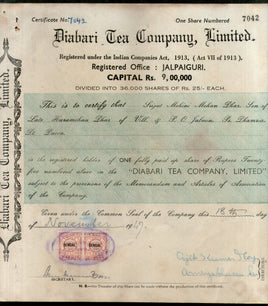 Certificate No. 7042
One Share Numbered 7042
Diabari Tea Company, Limited.
Registered under the Indian Companies Act, 1913, (Act VII of 1913).
Registered Office : JALPAIGURI.
CAPITAL Rs. 9,00,000
DIVIDED INTO 36,000 SHARES OF RS. 25/- EACH.
This is to certify that Mohini Mohan Dhar, Son of
Late Dhar of Vill. & P.O.
Dt. Dacca
is the registered holder of ONE fully paid up share of Rupees Twenty
five numbered above in the "DIABARI TEA COMPANY, LIMITED"
subject to the provisions of the Memorandum and Articles of Association
of the Company.
Given under the Common Seal of the Company this 18th day
of November 19
BENGAL BENGAL
SECRETARY.
N. B.—No Transfer of this Share can be made without the production of this certificate.
Diabari Tea Company, Limited.